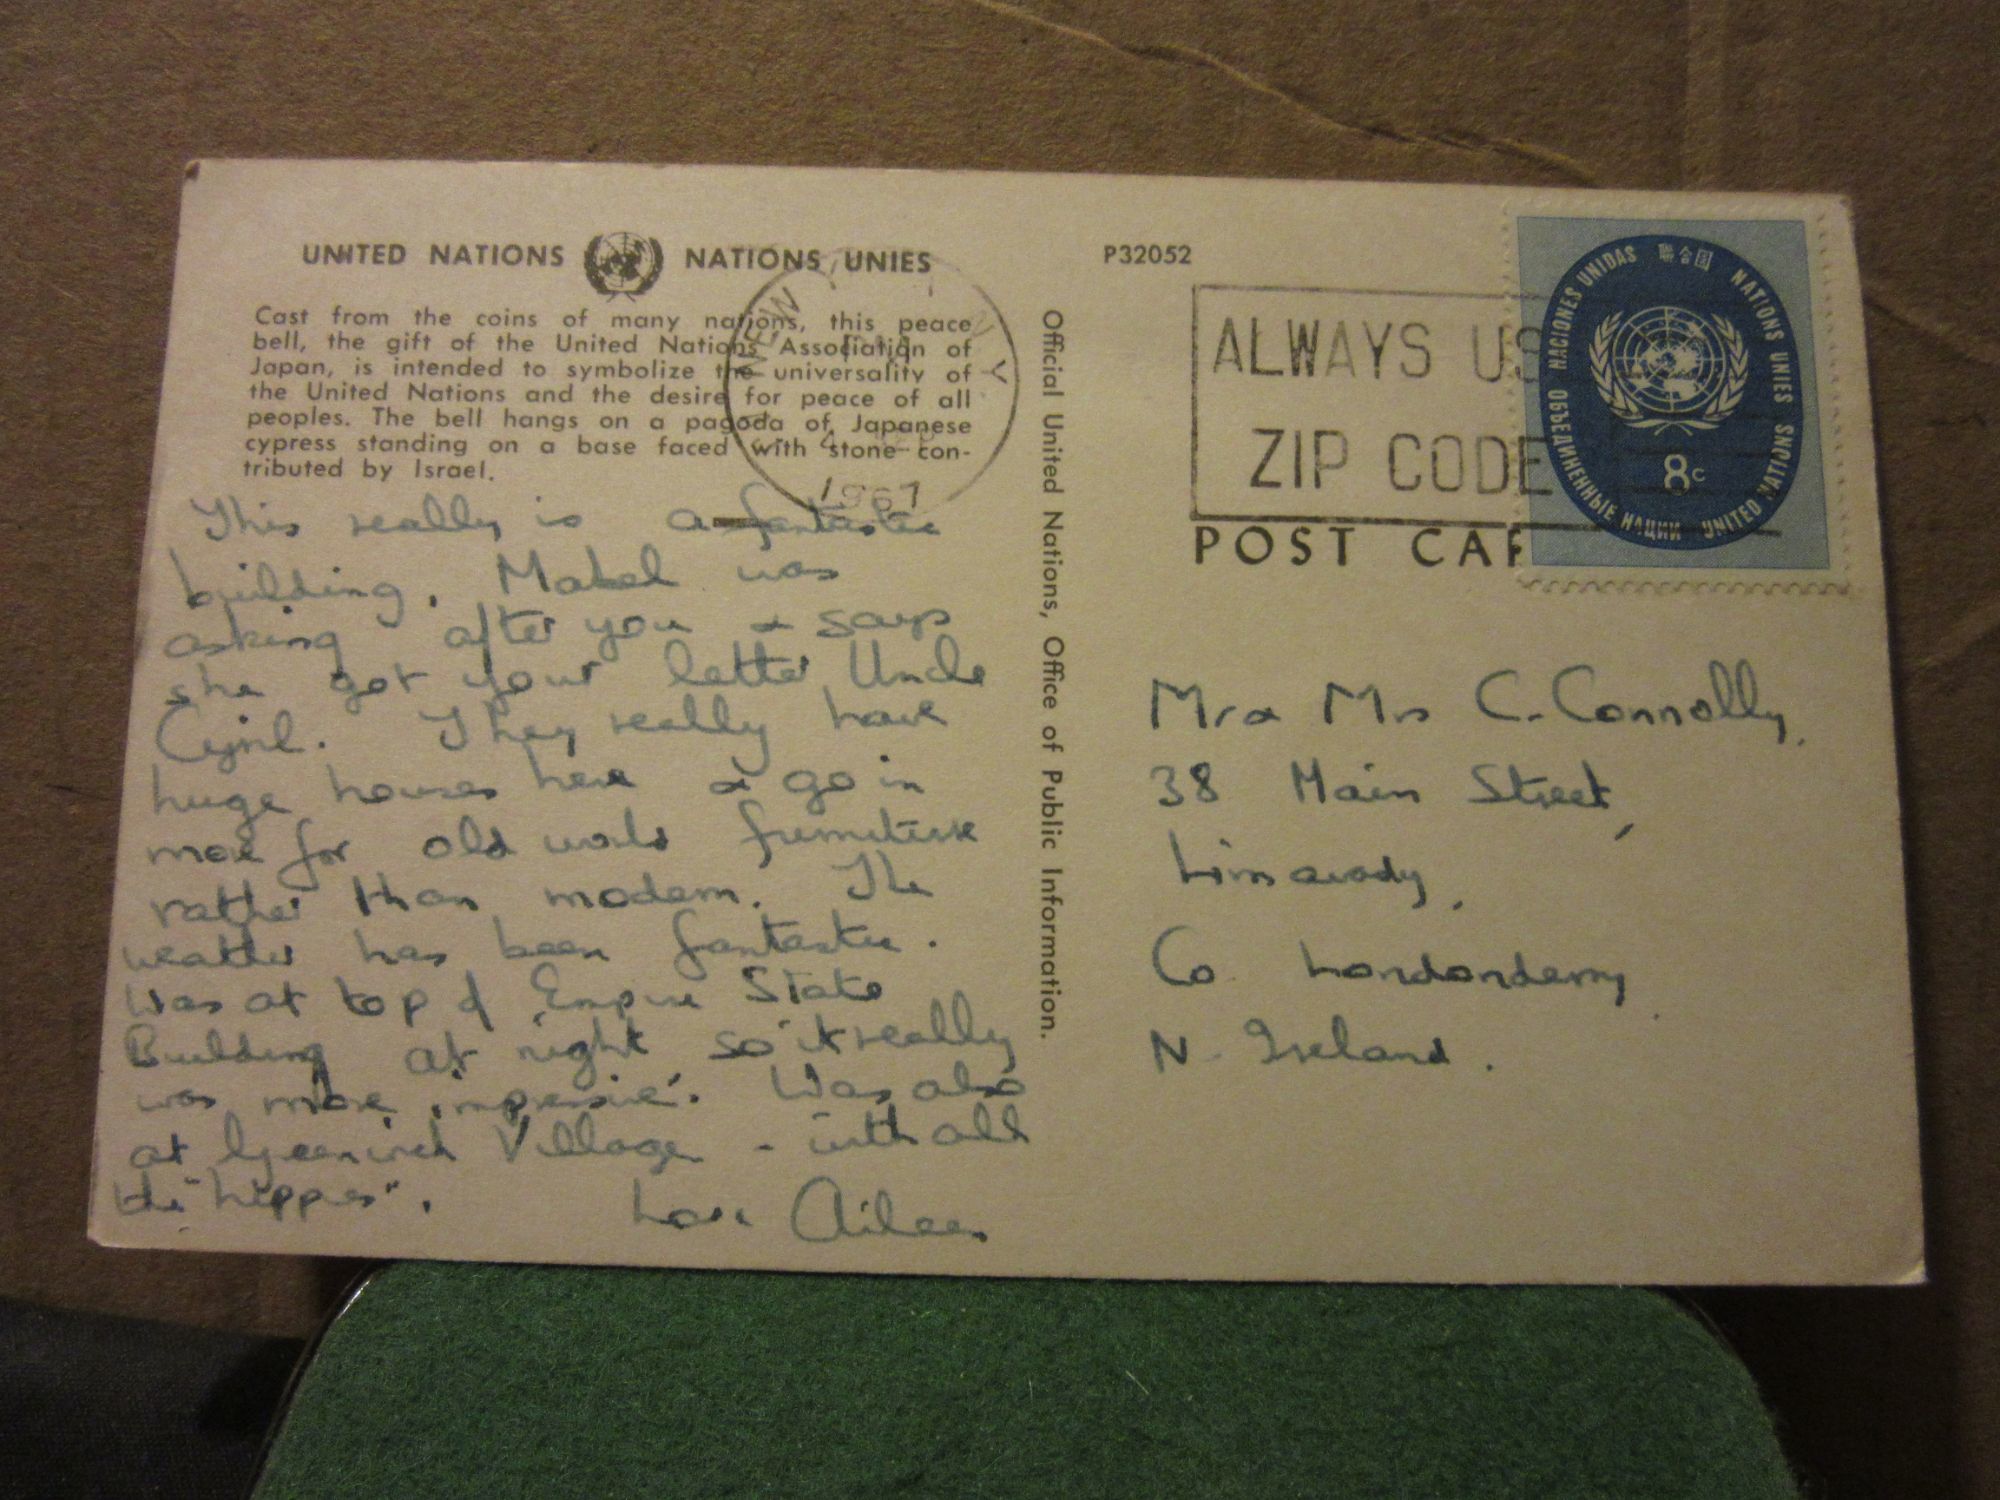 UNITED NATIONS NATIONS UNIES
Cast from the coins of many nations, this peace
bell, the gift of the United Nations Association of
Japan, is intended to symbolize the universality of
the United Nations and the desire for peace of all
peoples. The bell hangs on a pagoda of Japanese
cypress standing on a base faced with stone con-
tributed by Israel.
This really is a fantastic
building. Mabel was
asking after you & says
she got your letter Uncle
Cyril. They really have
huge houses here & go in
more for old world furniture
rather than modern. The
weather has been fantastic.
Was at top of Empire State
Building at night so it really
was more impressive. Was also
at Greenwich Village - with all
the "hippies".
Love Aileen
NEW Y
1967
Official United Nations, Office of Public Information.
P32052
ALWAYS US
ZIP CODE
POST CAR
NACIONES UNIDAS 聯合国 NATIONS UNIES
ОБЪЕДИНЕННЫЕ НАЦИИ UNITED NATIONS
8c
Mr & Mrs C. Connolly,
38 Main Street,
Limavady,
Co Londonderry
N. Ireland.